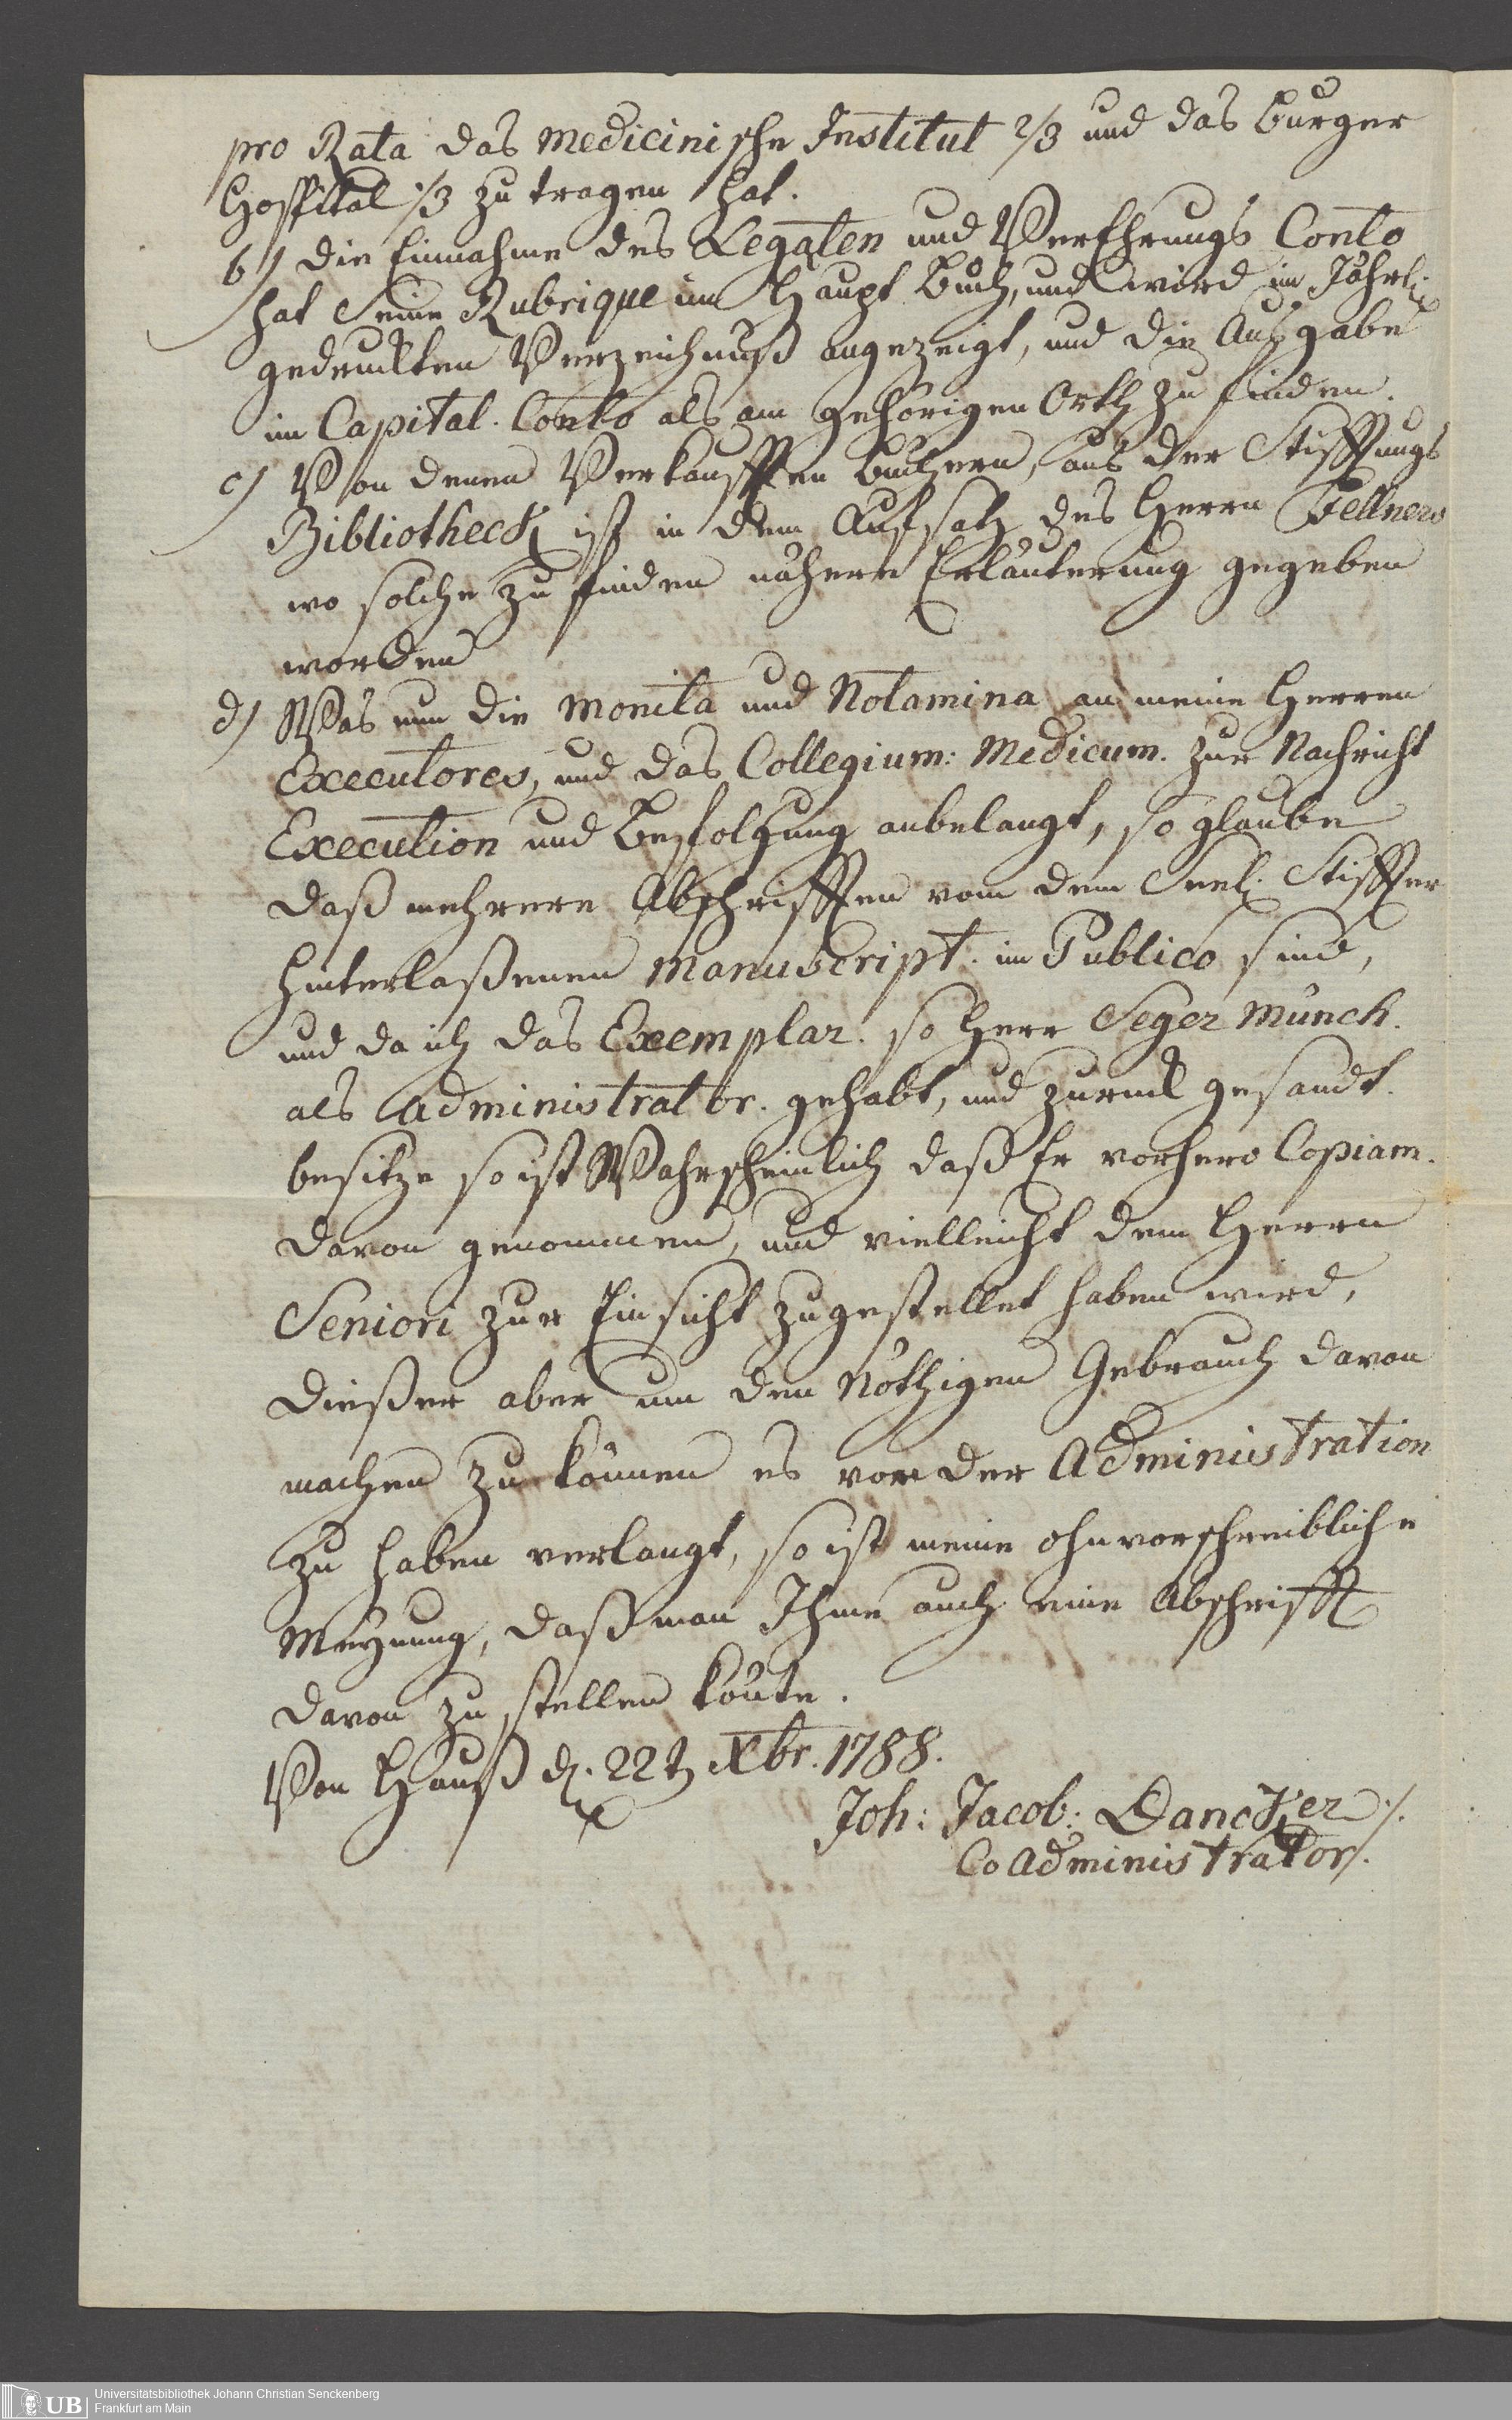 pro Rata das Medicinische Institut 2/3 und das Burger
Hospital 1/3 zu tragen hat.
b) die Einnahme des Legaten und Verehrungs Conto
hat Seine Rubrique im Haupt Buch, und wird im Jährl:
gedruckten Verzeichnuß angezeigt, und die Ausgabe
im Capital. Conto als am gehörigen Orth zu finden.
c) Von denen Verkaufften büchern, aus der Stifftungs
Bibliotheck ist in dem Aufsatz des Herrn Fellners
wo solche zu finden nähere Erläuterung gegeben
worden
d) Was nun die Monita und Notamina an meine Herren
Executores, und das Collegium: Medicum. zur Nachricht
Execution und Befolgung anbelangt, so glaube
daß mehrere Abschrifften vom dem Seel: Stiffter
hinterlaßenen Manuscript. im Publico sind,
und da ich das Exemplar. so Herr Seger Münch.
als Administrator. gehabt, und zurück gesandt.
besitze so ist Wahrscheinlich daß Er vorhero Copiam.
davon genommen, und vielleicht dem Herrn
Seniori zur Einsicht zugestellet haben wird,
dießer aber um den Nöthigen Gebrauch davon
machen zu können es von der Administration
zu haben verlangt, so ist meine ohnvorschreibliche
Meynung, daß man Ihme auch eine Abschrifft
davon zu stellen könte.
Von Hauß d. 22t Xbr. 1788.
Joh: Jacob: Dancker
CoAdministrator.
UB Universitätsbibliothek Johann Christian Senckenberg
Frankfurt am Main